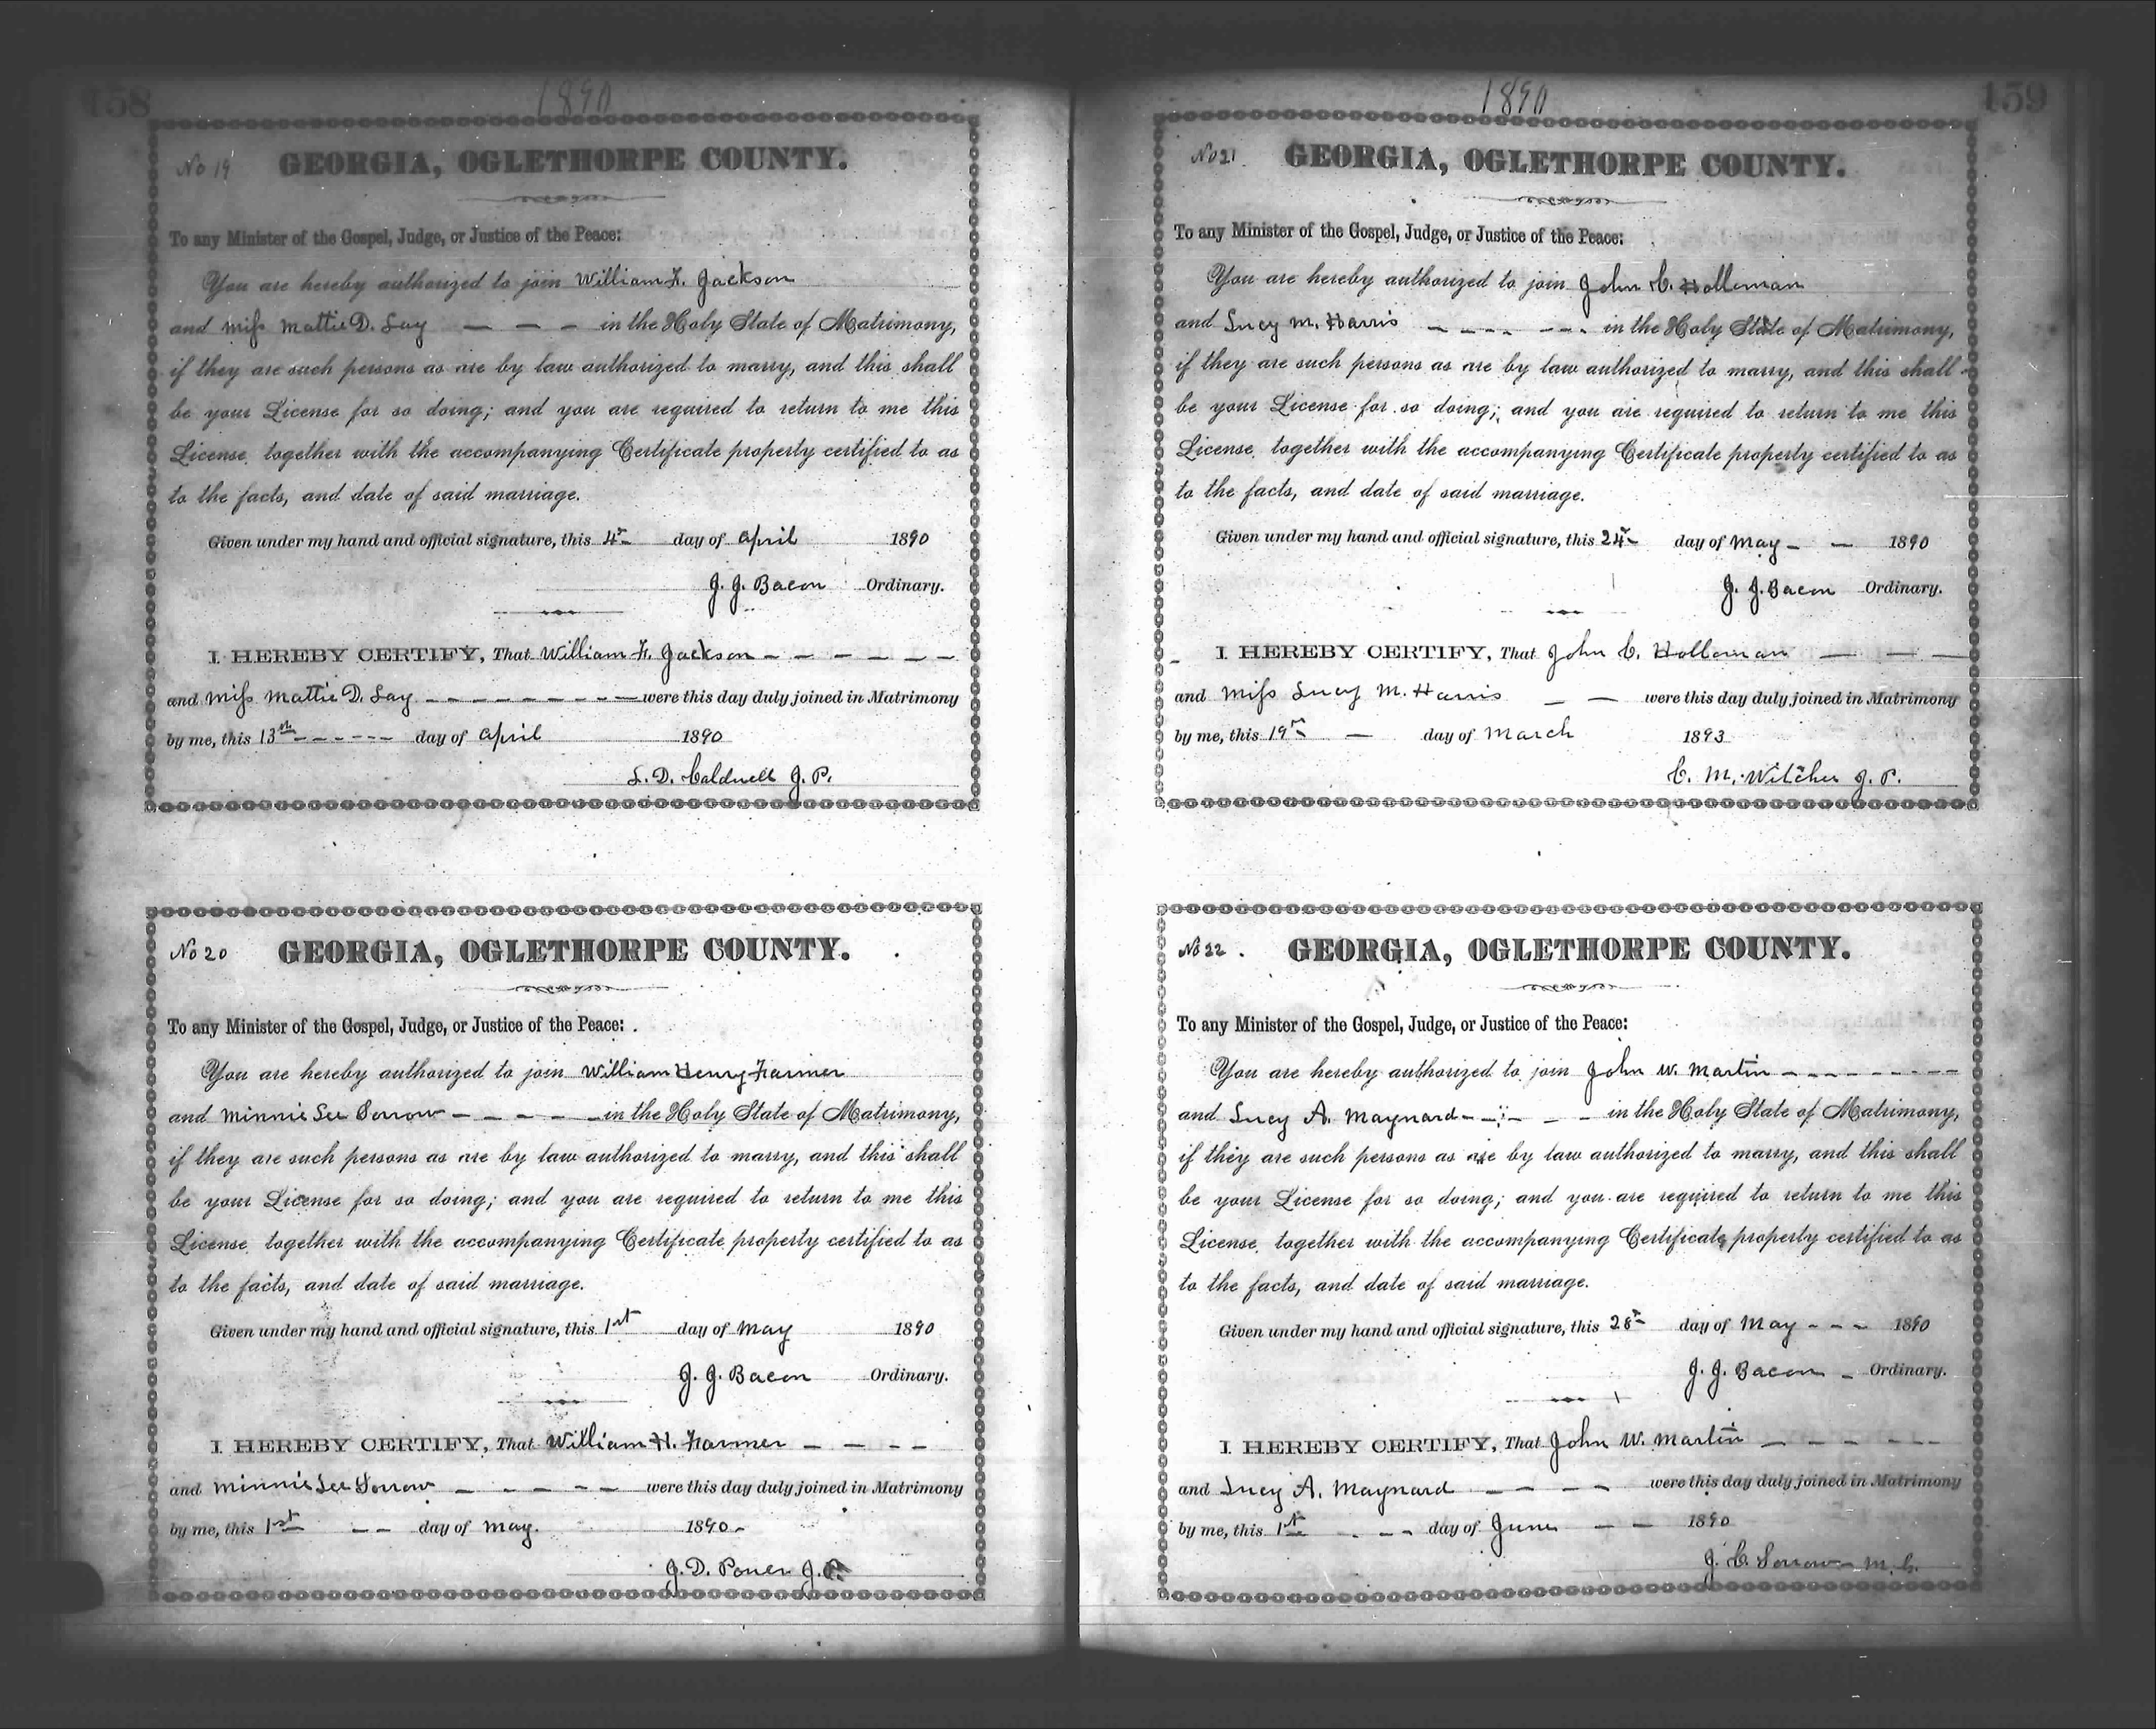 158
1890
No 19 GEORGIA, OGLETHORPE COUNTY.
To any Minister of the Gospel, Judge, or Justice of the Peace:
You are hereby authorized to join William F. Jackson
and Miss Mattie D. Lay — — — in the Holy State of Matrimony,
if they are such persons as are by law authorized to marry, and this shall
be your License for so doing; and you are required to return to me this
License, together with the accompanying Certificate property certified to as
to the facts, and date of said marriage.
Given under my hand and official signature, this 4th day of April 1890
J. J. Bacon Ordinary.
I HEREBY CERTIFY, That William F. Jackson — — — — — —
and Miss Mattie D. Lay — — — — — — — — were this day duly joined in Matrimony
by me, this 13th — — — — — day of April 1890
L. D. Caldwell J. P.
No 20 GEORGIA, OGLETHORPE COUNTY.
To any Minister of the Gospel, Judge, or Justice of the Peace:
You are hereby authorized to join William Henry Farmer
and Minnie Lee Sorrow — — — — — in the Holy State of Matrimony,
if they are such persons as are by law authorized to marry, and this shall
be your License for so doing; and you are required to return to me this
License, together with the accompanying Certificate property certified to as
to the facts, and date of said marriage.
Given under my hand and official signature, this 1st day of May 1890
J. J. Bacon Ordinary.
I HEREBY CERTIFY, That William H. Farmer — — — —
and Minnie Lee Sorrow — — — — — were this day duly joined in Matrimony
by me, this 1st — — day of May. 1890 -
J. D. Power J. P.
159
1890
No 21. GEORGIA, OGLETHORPE COUNTY.
To any Minister of the Gospel, Judge, or Justice of the Peace:
You are hereby authorized to join John C. Holloman
and Lucy M. Harris — — — — — — — in the Holy State of Matrimony,
if they are such persons as are by law authorized to marry, and this shall
be your License for so doing; and you are required to return to me this
License, together with the accompanying Certificate property certified to as
to the facts, and date of said marriage.
Given under my hand and official signature, this 24th day of May — — 1890
J. J. Bacon Ordinary.
I HEREBY CERTIFY, That John C. Holloman — — —
and Miss Lucy M. Harris — — were this day duly joined in Matrimony
by me, this 19th — day of March 1893
C. M. Witcher J. P.
No 22. GEORGIA, OGLETHORPE COUNTY.
To any Minister of the Gospel, Judge, or Justice of the Peace:
You are hereby authorized to join John W. Martin — — — — — — — —
and Lucy A. Maynard — — — — — in the Holy State of Matrimony,
if they are such persons as are by law authorized to marry, and this shall
be your License for so doing; and you are required to return to me this
License, together with the accompanying Certificate property certified to as
to the facts, and date of said marriage.
Given under my hand and official signature, this 28th day of May — — — 1890
J. J. Bacon — Ordinary.
I HEREBY CERTIFY, That John W. Martin — — — — — —
and Lucy A. Maynard — — — — were this day duly joined in Matrimony
by me, this 1st — — — day of June — — 1890
J. C. Sorrow M. G.